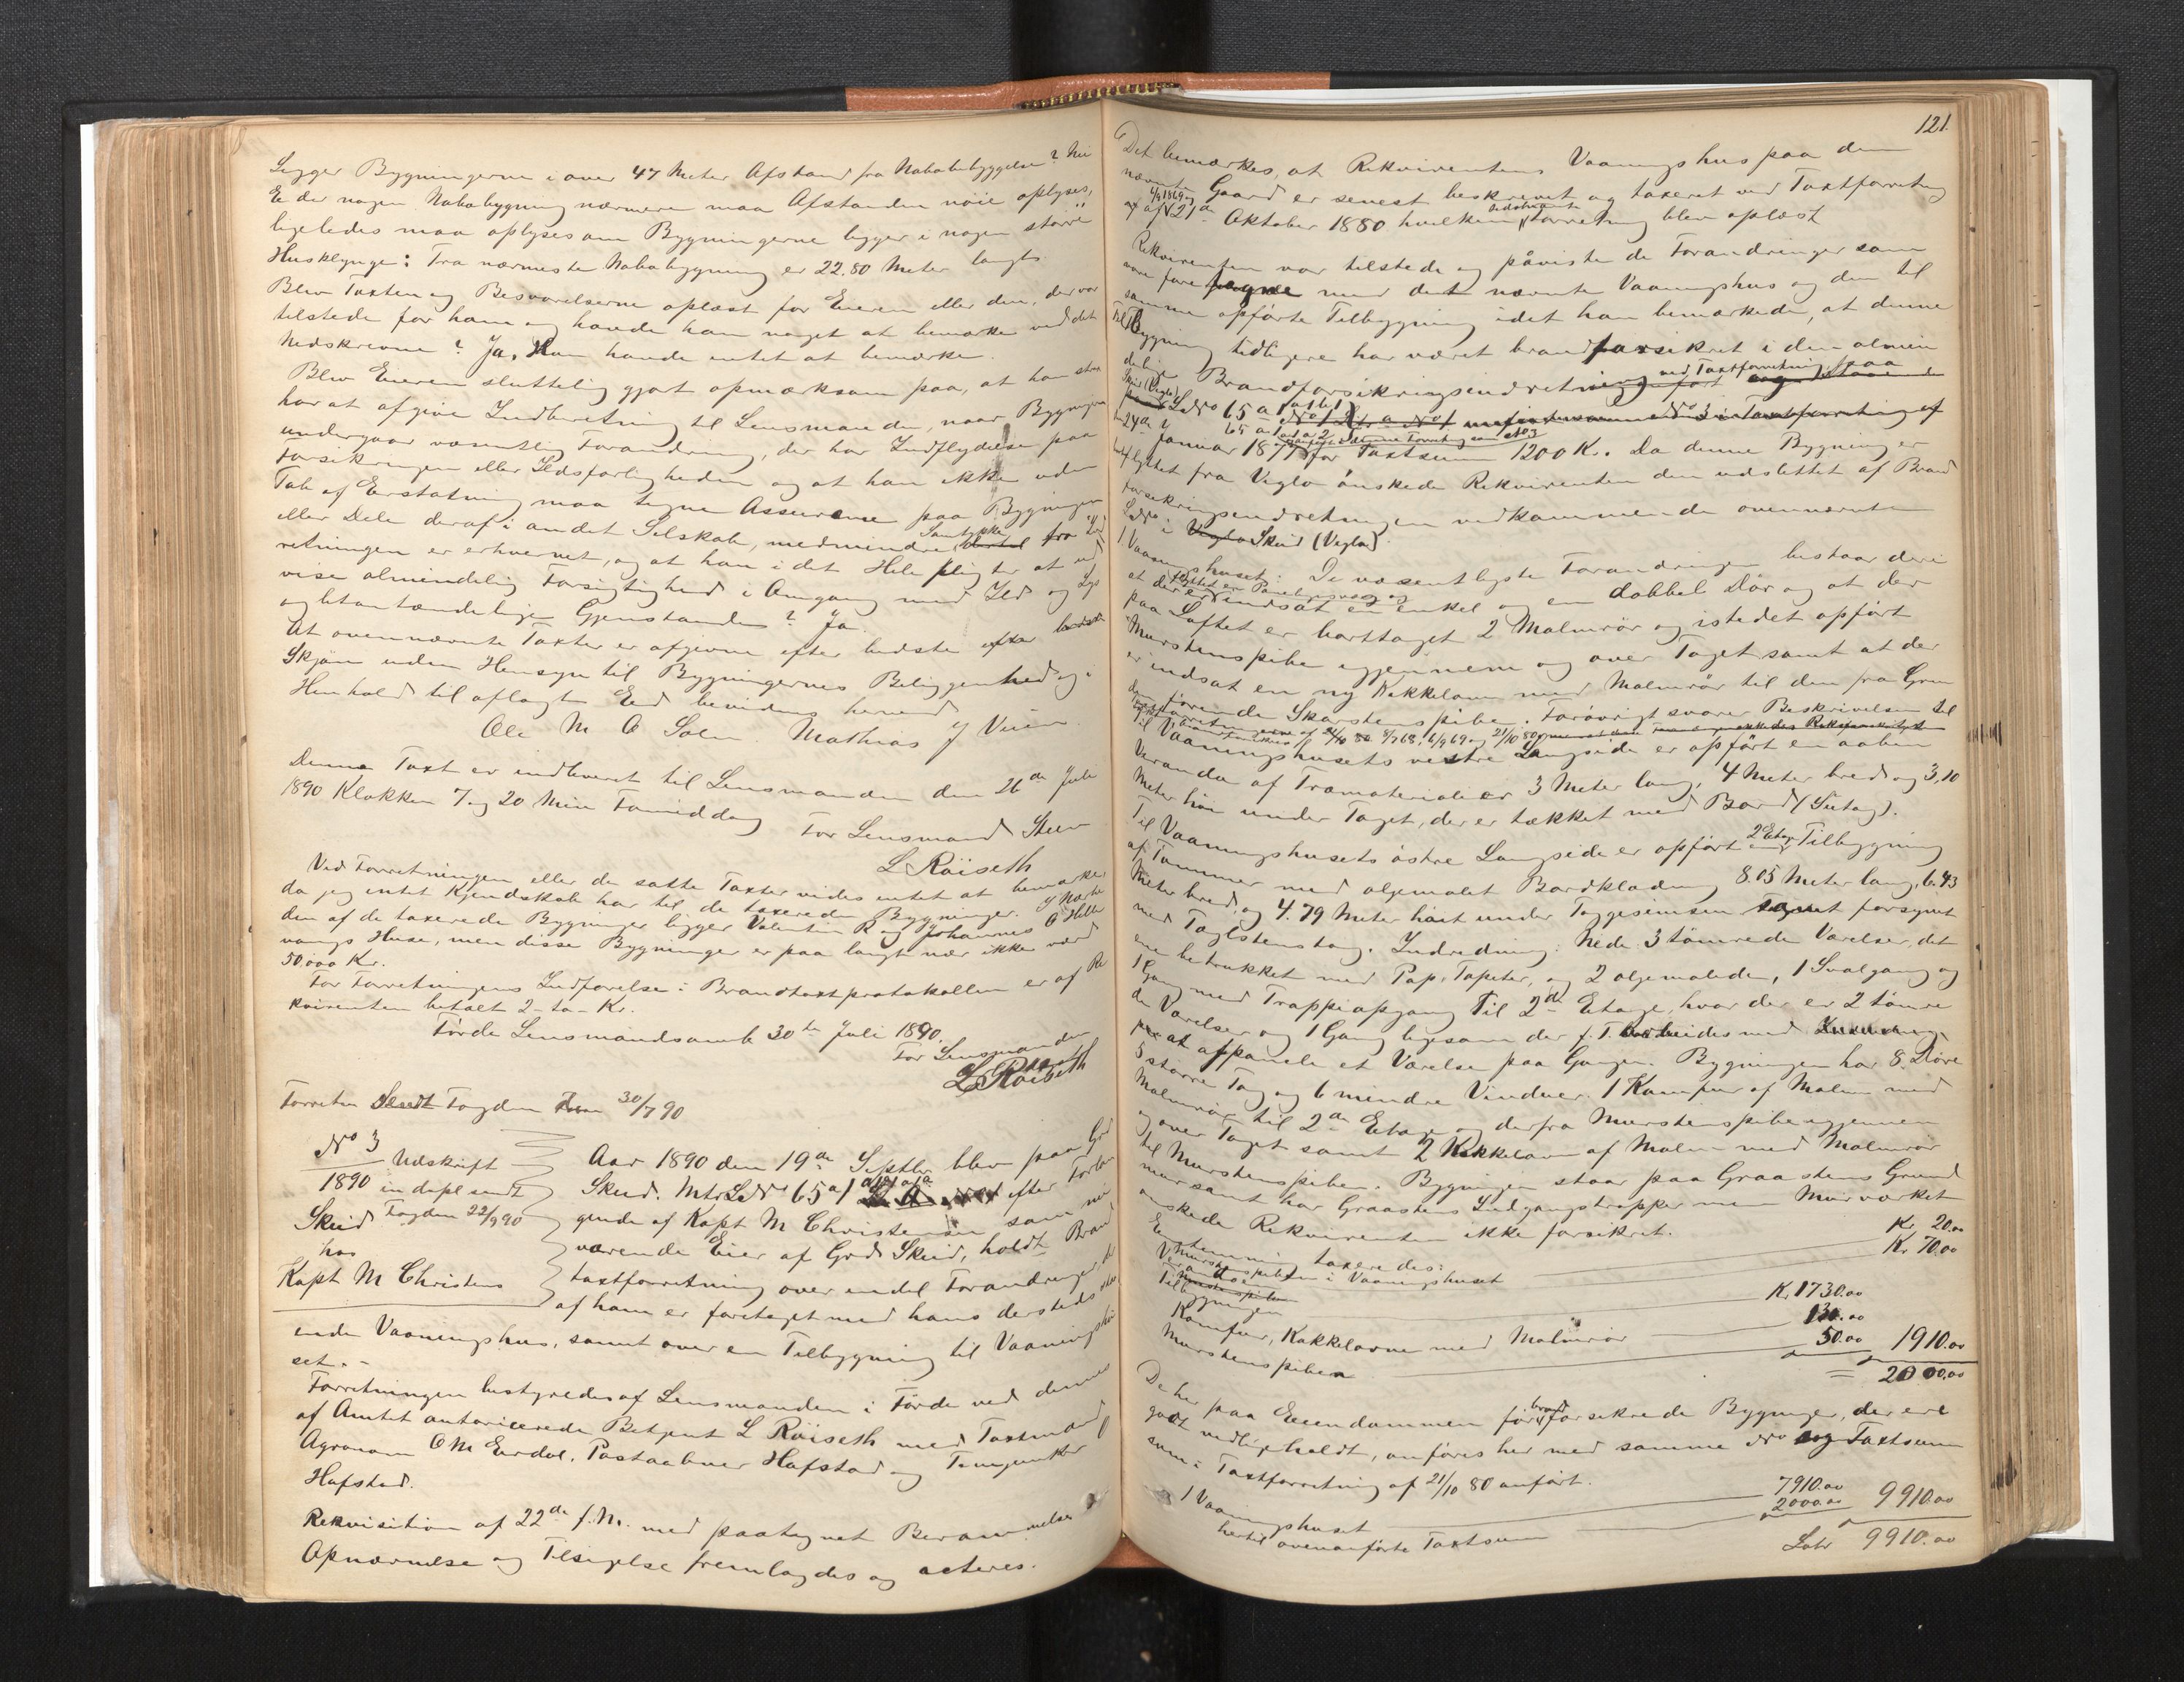 Ligger Bygningerne i over 47 Meter Afstand fra Nabobebyggelse? Nei
Er der nogen Nabobygning nærmere maa Afstanden nöie oplyses,
ligeledes maa oplyses om Bygningerne ligger i nogen större
Husklynge: Fra nærmeste Nabobygning er 22.80 Meter langt
Blev Taxten og Besvarelserne oplæst for Eieren eller den, der var
tilstede for ham og havde han noget at bemærke ved det
Nedskrevne? Ja, Han havde intet at bemærke.
Blev Eieren sluttelig gjort opmærksom paa, at han strax
har at afgive Indberetning til Lensmanden, naar Bygningen
undergaar væsentlig Forandring, der har Indflydelse paa
Forsikringen eller Ildsfarligheden og at han ikke uden
Tab af Erstatning maa tegne Assurance paa Bygningen
eller Dele deraf i andet Selskab, medmindre Samtykke fra Ind
retningen er erhvervet, og at han i det Hele pligter at ud
vise almindelig Forsigtighed i Omgang med Ild og Lys
og letantændelige Gjenstande? Ja.
At ovennævnte Taxter er afgivne efter bedste
Skjön uden Hensyn til Bygningernes Beliggenhed og i
Henhold til aflagt Eed bevidnes herved
Ole M O Solm Mathias J Vium
Denne Taxt er indleveret til Lensmanden den 26de Juli
1890 Klokken 7 og 20 Min Formiddag
For Lensmand Steen
L Röiseth
Ved Forretningen eller de satte Taxter vides intet at bemærke,
da jeg intet Kjendskab har til de taxerede Bygninger. I Nærhe
den af de taxerede Bygninger ligger Valentin R og Johannes O Helle
vangs Huse, men disse Bygninger er paa langt nær ikke værd
50.000 Kr.
For Forretningens Indförelse i Brandtaxtprotokollen er af Re
kvirenten betalt 2 - to - Kr.
Förde Lensmandsomb 30te Juli 1890.
For Lensmanden
L Röiseth
Forretn Sendt Fogden 30/7 90
No 3
1890
Skeid
hos
Kapt M Christens
Udskrift
in dupl sendt
Fogden 22/9 90
Aar 1890 den 19de Septbr blev paa Grd
Skeid. Mtr LNo 65 a/1 efter Forlan
gende af Kapt M Christensen som nu
værende Eier af Grd Skeid, holdt Brand
taxtforretning over endel Forandringer, der
af ham er foretaget med hans dersteds
ende Vaaningshus, samt over en Tilbygning til Vaaningshu
set. -
Forretningen bestyredes af Lensmanden i Förde ved dennes
af Amtet autoricerede Betjent L Röiseth med Taxtmænd
Agronom O M Eirdal, Postaabner Hafstad og
Hafstad.
Rekvisition af 22de f. M. med paategnet Berammelse
Opnævnelse og Tilsigelse fremlagdes og acteres.
121.
Det bemærkes, at Rekvirentens Vaaningshus paa den
nævnte Gaard er senest beskrevet og taxeret ved Taxtforretning
af 6/9 1869 og 21de Oktober 1880 hvilken sidstnævnte Forretning blev oplæst
Rekvirenten var tilstede og påviste de Forandringer som
vare foregaaede med det nævnte Vaaningshus og den til
samme opförte Tilbygning idet han bemærkede, at denne
Tilbygning tidligere har været brandforsikret i den almin
delige Brandforsikringsindretning ved Taxtforretning paa
Skeid (Vegla) LNo 65 a
24de Januar 1877 for Taxtsum 1200 Kr. Da denne Bygning er
flyttet fra Vegla önskede Rekvirenten den udslettet af Brand
forsikringsindretningen vedkommende ovennævnte
LNo i Skeid (Vegla).
1 Vaaningshuset: De væsentligste Forandringer bestaar deri
at der er indsat en enkel og en dobbel Dör og at der
paa Loftet er borttaget 2 Malmrör og istedet opfört
Murstenspibe igjennem og over Taget samt at der
er indsat en ny Kakkelovn med Malmrör til den fra Grun
den förende Skorstenspibe. Forövrigt svarer Beskrivelsen til
Til Vaaningshusets vestre Langside er opfört en aaben
Veranda af Træmaterialier 3 Meter lang, 4 Meter bred og 3,10
Meter höi under Taget, der er tækket med Bord (Sutag).
Til Vaaningshusets östre Langside er opfört en 2 Etages Tilbygning
af Tömmer med oljemalet Bordklædning 8.05 Meter lang, 6.43
Meter bred, og 4.79 Meter höit under Taggesimsen samt forsynet
med Taglstenstag. Indredning: Nede 3 tömrede Værelser, det
ene betrukket med Pap, Tapeter, og 2 oljemalede, 1 Svalgang og
1 Gang med Trappeopgang til 2de Etage, hvor der er 2 tömre
de Værelser og 1 Gang ligesom der f. T. arbeides med
at afpanele et Værelse paa Gangen. Bygningen har 8 Döre
5 större Fag og 6 mindre Vinduer. 1 Komfur af Malm med
Malmrör til 2de Etage og derfra Murstenspibe igjennem
og over Taget samt 2 Kakkelovn af Malm med Malmrör
til Murstenspiben. Bygningen staar paa Graastens Grund
mur samt har Graastens Indgangstrapper men Murværket
önskede Rekvirenten ikke forsikret.
Enstemmig taxeredes:
Murstenspiben i Vaaningshuset Kr 20.00
Verandaen Kr 70.00
Tilbygningen Kr 1730.00
Komfur, Kakkelovne med Malmrör 130.00
Murstenspiben 50.00 1910.00
= 2000.00
De her paa Eiendommen för brandforsikrede Bygninger, der ere
godt vedligeholdt, anföres her med samme No og Taxtsum
som i Taxtforretning af 21/10 80 anfört.
1 Vaaningshuset 7910.00
hertil ovenanförte Taxtsum 2000.00 9910.00
Latr 9910.00